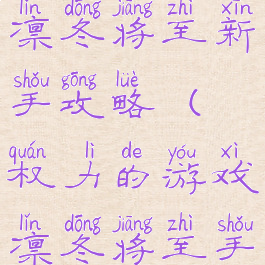 lǐn dōng jiāng zhì xīn
凛冬将至新
shǒu gōng lüè
手攻略（
quán lì de yóu xì
权力的游戏
lǐn dōng jiāng zhì shǒu
凛冬将至手